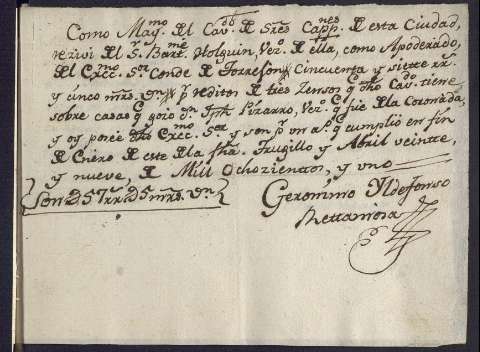 Como May.mo del Cav.do de Sres Capp.nes de esta Ciudad,
rezivi del S.r Bar.me Holguin, Vez.o de ella, como Apoderado,
del Exc.mo S.or Conde de Torrejon, Cinquenta y siete rr.
y cinco mrs. vn p.r reditos de tres Zensos q dho Cav.do tiene
sobre casas q gozo Dn. Jph Pizarro, Vez.o q fue de la Coronada,
y oy posee dho Exc.mo S.or y son p.r un a.o q cumplio en fin
de Enero de este de la fha. Trugillo y Abril veinte,
y nueve, de Mill Ochozientos, y uno
Son 57 rr. 5 mrs. vn
Geronimo Yldefonso
Rettamosa